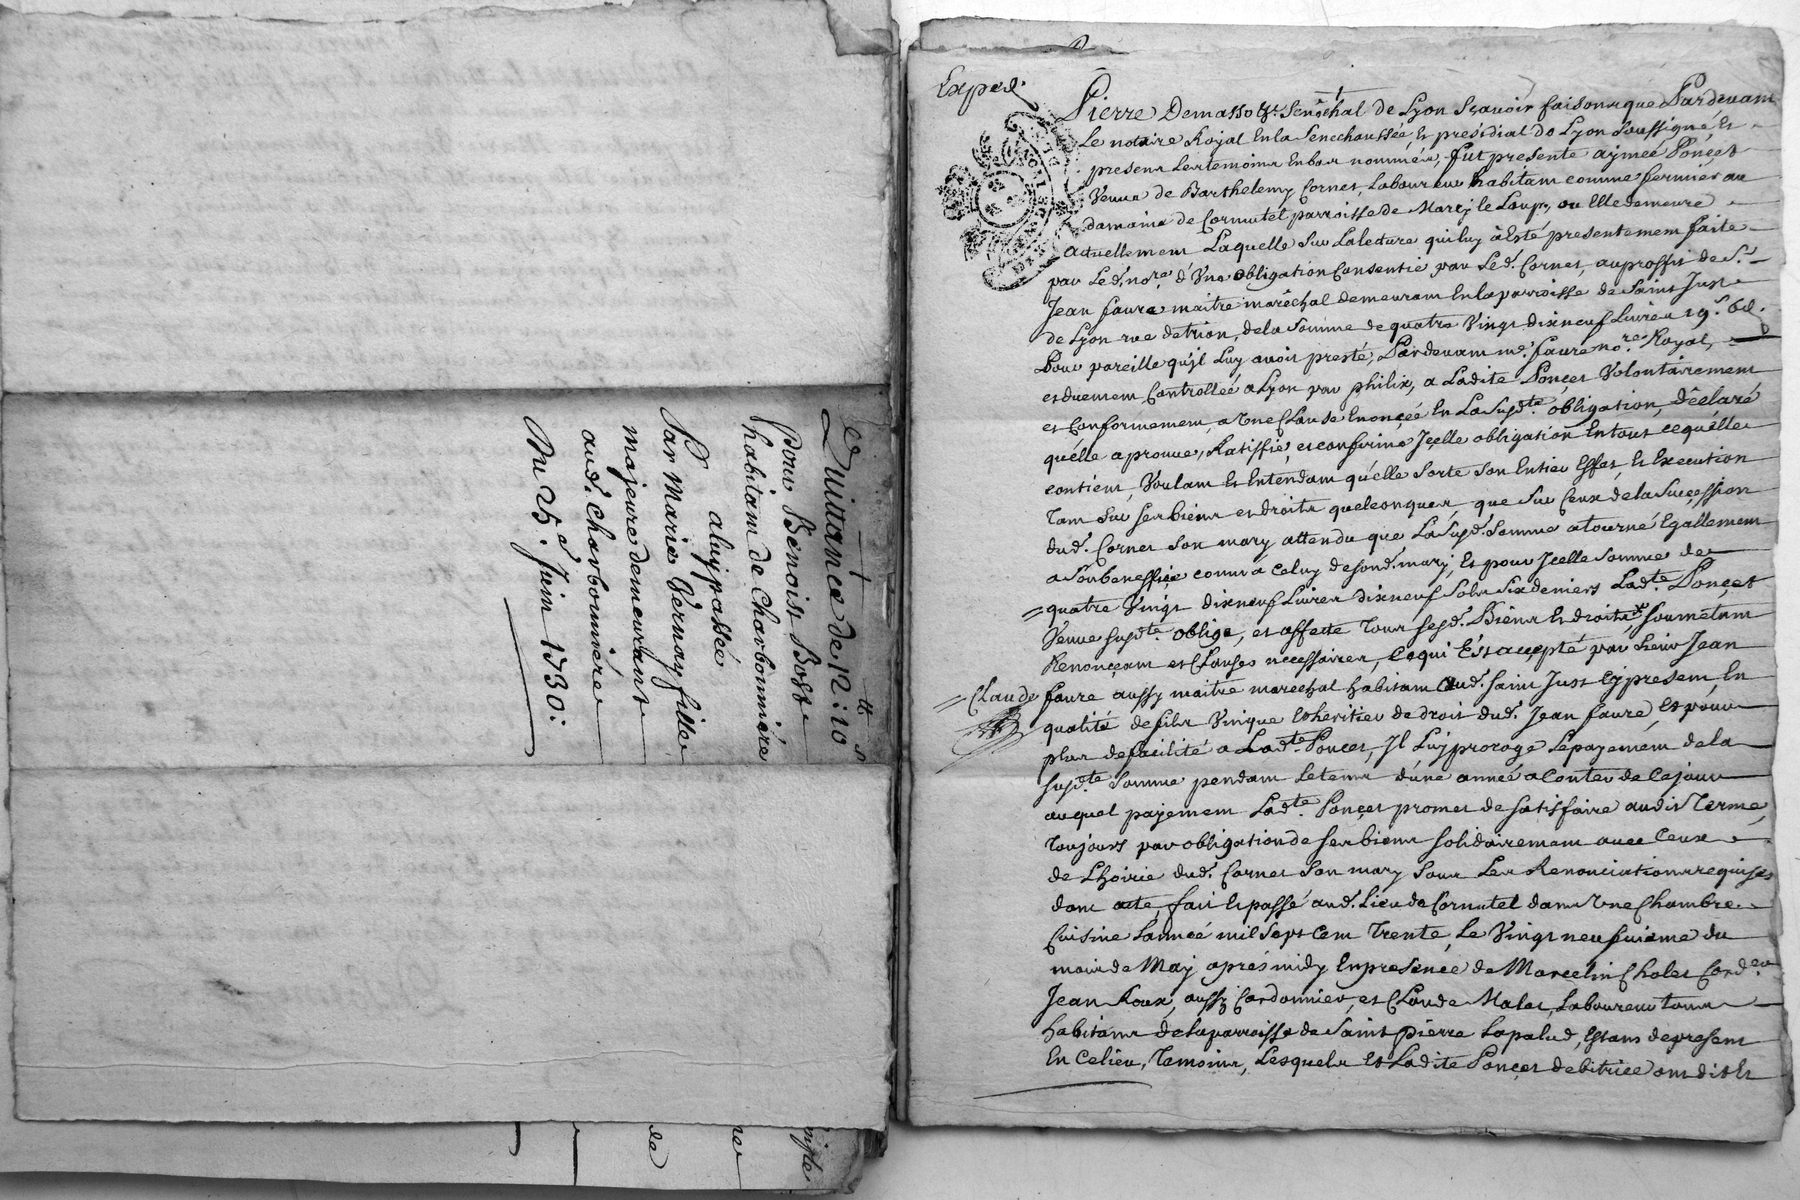 Quittance de 12tt: 10s
Pour Benoist Bost
habitant de Charbonniére
a luy passée
Par Marie Vernay fille
majeure demeurante
aud. Charbonniére
Du 25e Juin 1730:
Exped.
Pierre Demasso Sénéchal de Lyon Sçavoir faisons que Pardevant
Le notaire Royal En la Senechaussée, Et présidial de Lyon Soussigné, Et
presens Les temoins En bas nommés, fut presente aymeé Ponçet
Veuve de Barthelemy Cornet, Laboureur habitant comme fermier au
domaine de Cornutel parroisse de Marcy le Loup, ou Elle demeure
actuellement Laquelle Sur La lecture qui luy à Esté presentement faite
par Led. nore. d'Une obligation Consentie par Led. Cornet, au proffit de Sr.
Jean faure maitre maréchal demeurant En la parroisse de Saint Just
de Lyon rue de trion, de la Somme de quatre Vingt dix neuf Livres 19s. 6d.
Pour pareille qu'il Luy avoit presté, Pardevant me. faure nore. Royal,
et duement Controlleé a Lyon par philix, a Ladite Ponçet Volontairement
et Conformement, a Une Clause Enonçéé En La Sujdte. obligation, déclaré
quélle aprouve, Ratiffie, et confirme Jçelle obligation En tout ce quélle
contient, Voulant Et Entendant quélle Sorte Son Entier Effet, Et Execution
tant Sur Ses biens et droits quelconques, que Sur Ceux de la Sucession
dud. Cornet Son mary attendu que La Sujd. Somme a tourné Egallement
a Son beneffiçe comme a Celuy desond. mary, Et pour Jcelle Somme de
= quatre Vingt dix neuf Livres dix neuf Sols Six deniers Ladte. Ponçet
Veuve sujdte oblige, et affecte Tous sesd. Biens Et droits, soumettant
Renonçant et Clauses neccessaires, Ce qui Ést accepté par Sieur Jean
= Claude faure aussy maitre marechal habitant aud. saint Just Cy present, En
qualité de fils Unique Et heritier de droit dud. Jean faure, Et pour
plus de faeilité a Ladte. Ponçet, Il Luy proroge Le payement de la
sujdte Somme pendant Le tems d'une anneé a Conter de Ce jour
auquel payement Ladte. Ponçet promet de satisfaire audit Terme,
Toujours par obligation de Ses biens solidairement avec Ceux
de L'hoirie dud. Cornet Son mary Sous Les Renonciations requises
dont acte, fait Et passé aud. Lieu de Cornutel dans Une Chambre
Cuisine L'anneé mil Sept Cent Trente, Le Vingt neufuieme du
mois de May aprés midy En presence de Marcelin Cholet Corder.
Jean Roux, aussy Cordonnier, et Claude Malet, Laboureur tous
habitans de la parroisse de Saint Pierre Lapalud, Estans de present
En Ce lieu, Temoins, Lesquels Et Ladite Ponçet debitrice ont dit Et